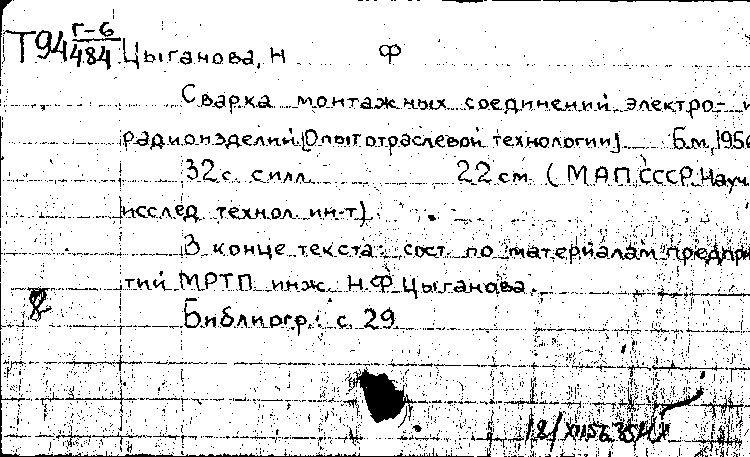 Т94 Г-6/484 Цыганова, Н Ф
Сварка монтажных соединений электро- и
радиоизделий (Опыт отраслевой технологии) Б.м, 1956
32 с. с илл. 22 см (МАП СССР. Науч
исслед технол. ин-т)
В конце текста: сост по материалам предпри
тий МРТП инж. Н.Ф. Цыганова.
8
Библиогр.: с. 29